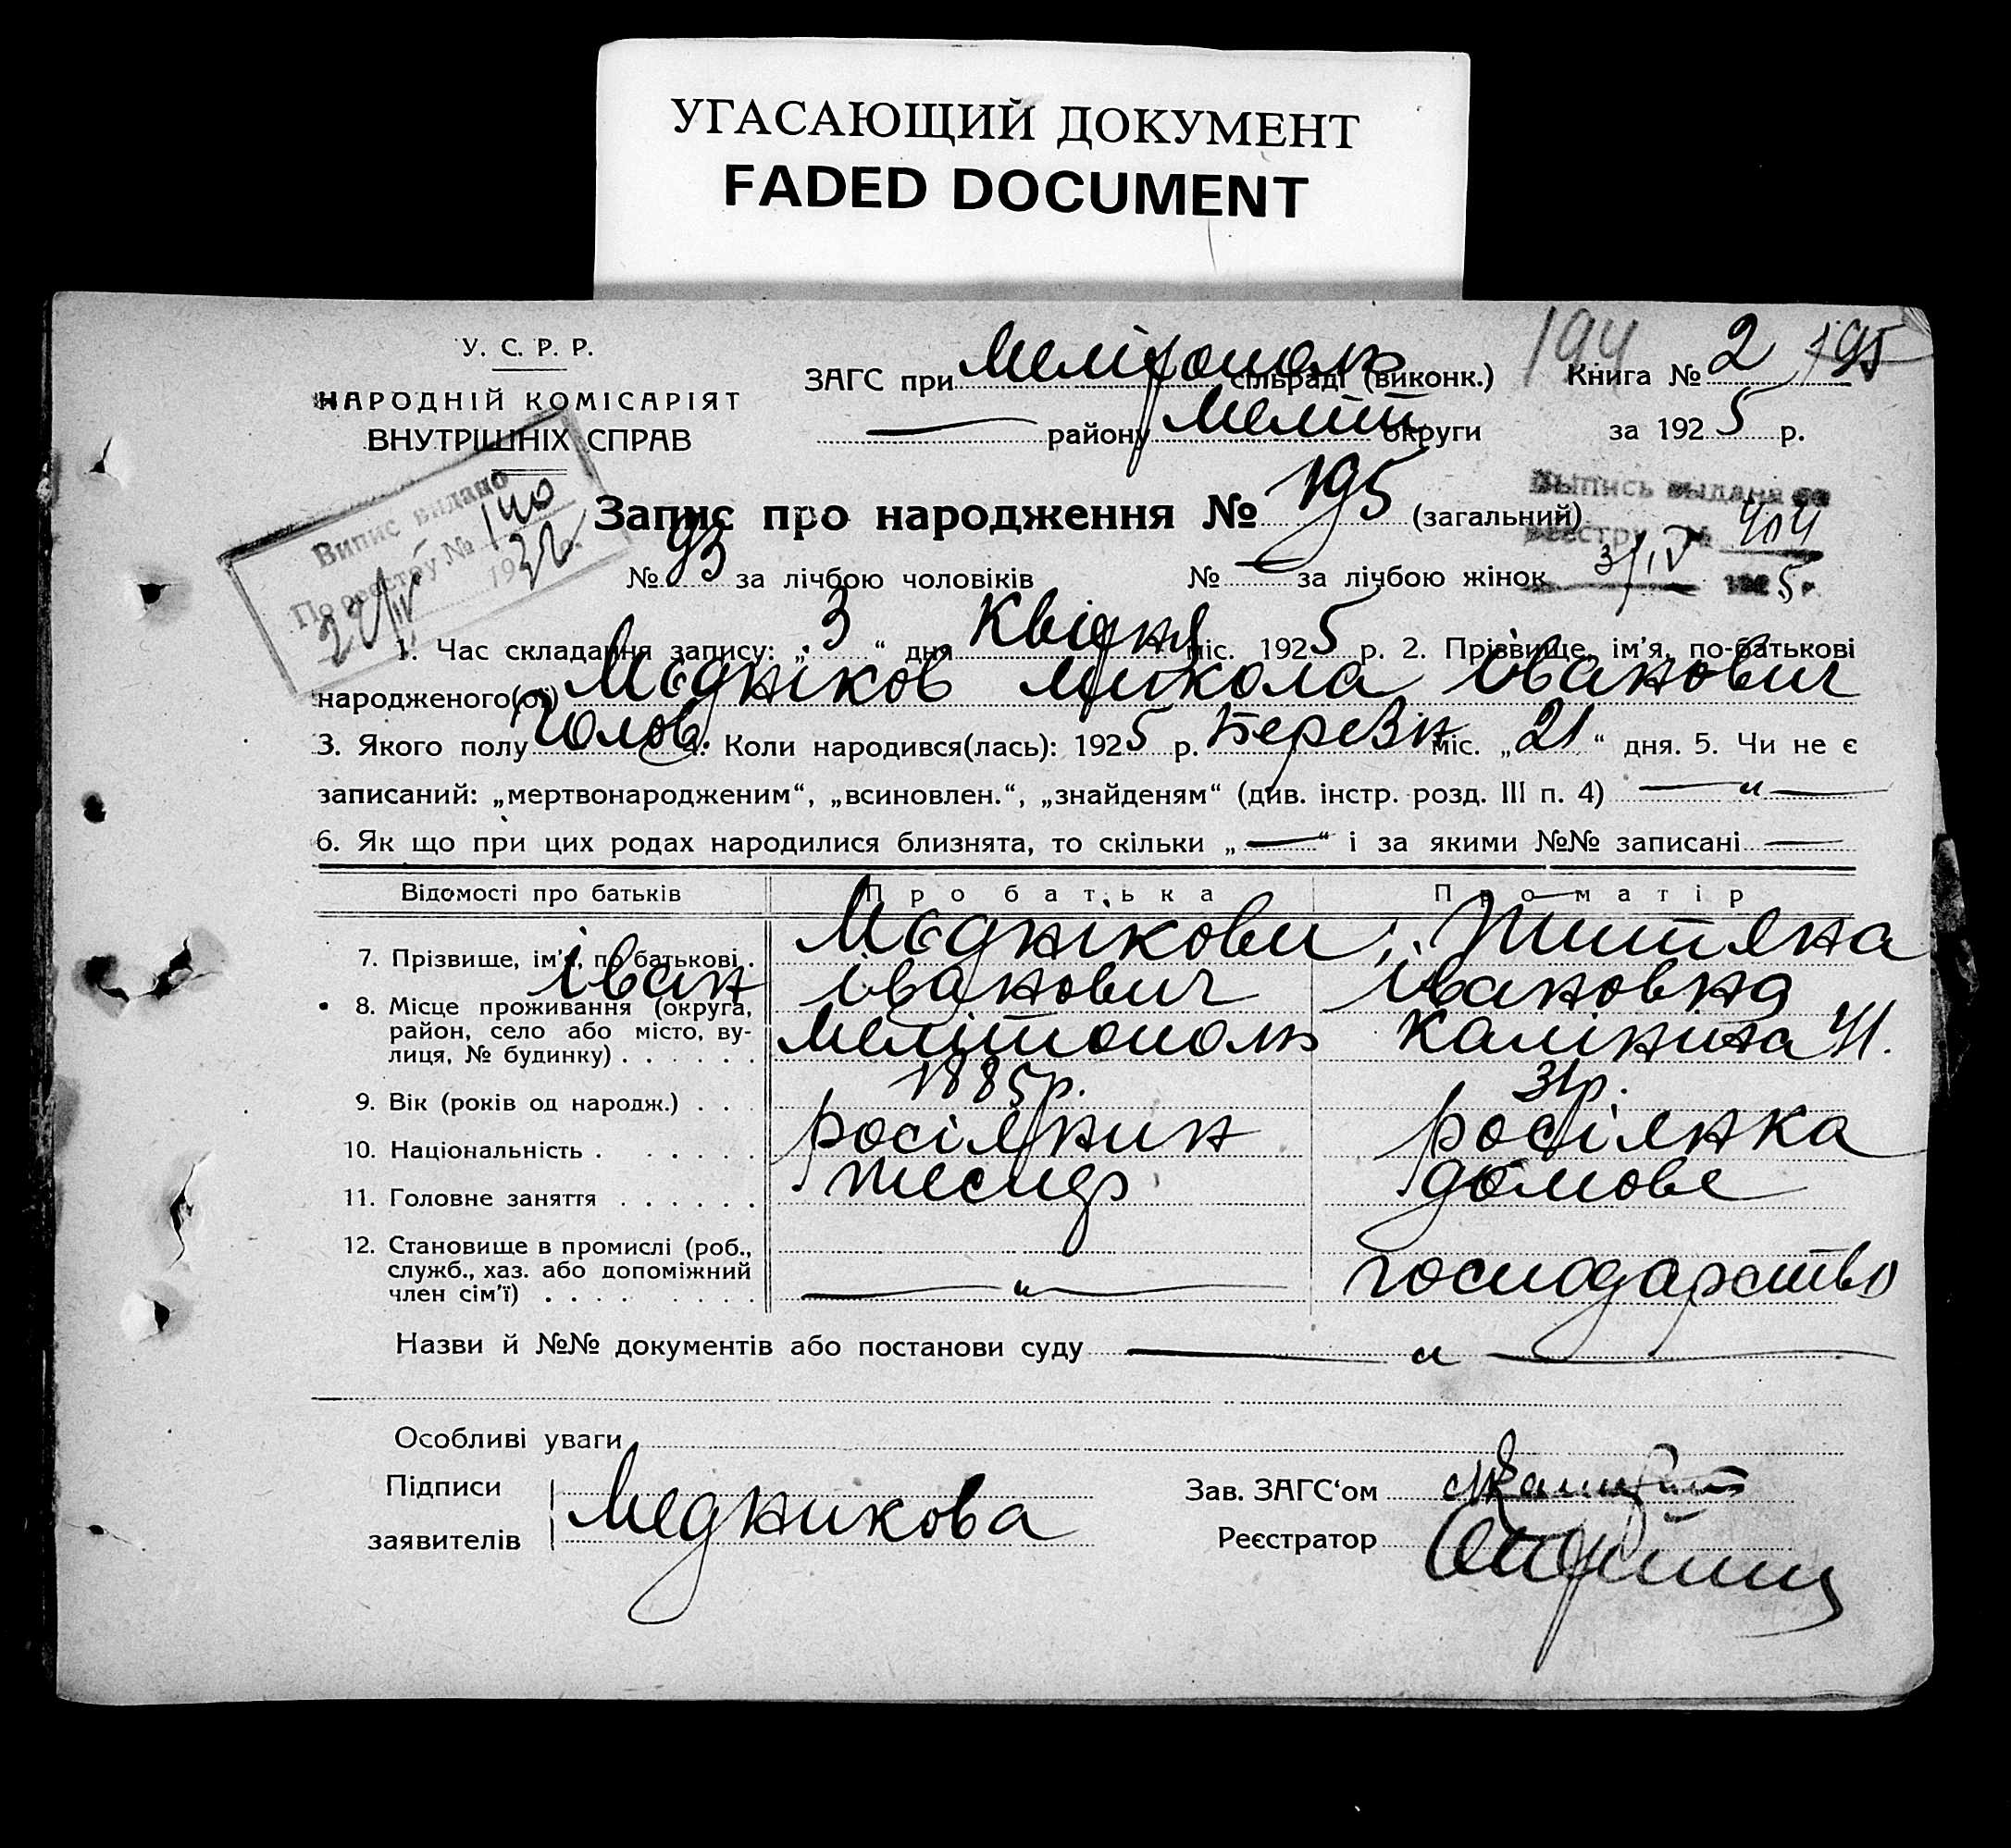 УГАСАЮЩИЙ ДОКУМЕНТ
FADED DOCUMENT
У. С. Р. Р.
НАРОДНІЙ КОМІСАРІЯТ
ВНУТРІШНІХ СПРАВ
ЗАГС при Мелітополь сільраді (виконк.)
— району Меліт округи
194 Книга № 2 195
за 1925 р.
Випис видано
По реєстру № 140
22/IV 1932 р.
Выпись выдана по
реестру № 404
3/IV 1925 г.
Запис про народження № 195 (загальний)
№ 93 за лічбою чоловіків № — за лічбою жінок
1. Час складання запису: „3“ дня Квітня міс. 1925 р. 2. Прізвище, ім'я, по-батькові
народженого(ої) Мєдніков Микола Іванович
3. Якого полу Чолов. 4. Коли народився(лась): 1925 р. Березн міс. „21“ дня. 5. Чи не є
записаний: „мертвонародженим“, „всиновлен.“, „знайденям“ (див. інстр. розд. III п. 4) — „ —
6. Як що при цих родах народилися близнята, то скільки „—“ і за якими №№ записані —
Відомості про батьків Про батька Про матір
7. Прізвище, ім'я, по батькові . Мєднікови Титяна
Іван Іванович Івановна
8. Місце проживання (округа,
район, село або місто, ву-
лиця, № будинку) . . . . . . Мелітополь Калініна 41.
9. Вік (років од народж.) . . . 1885р. 31р.
10. Національність . . . . . . росіянин росіянка
11. Головне заняття . . . . . . тесляр домове
12. Становище в промислі (роб.,
служб., хаз. або допоміжний
член сім'ї) . . . . — „ — господарство
Назви й №№ документів або постанови суду — „ —
Особливі уваги
Підписи
заявителів Медникова
Зав. ЗАГС'ом
Реєстратор